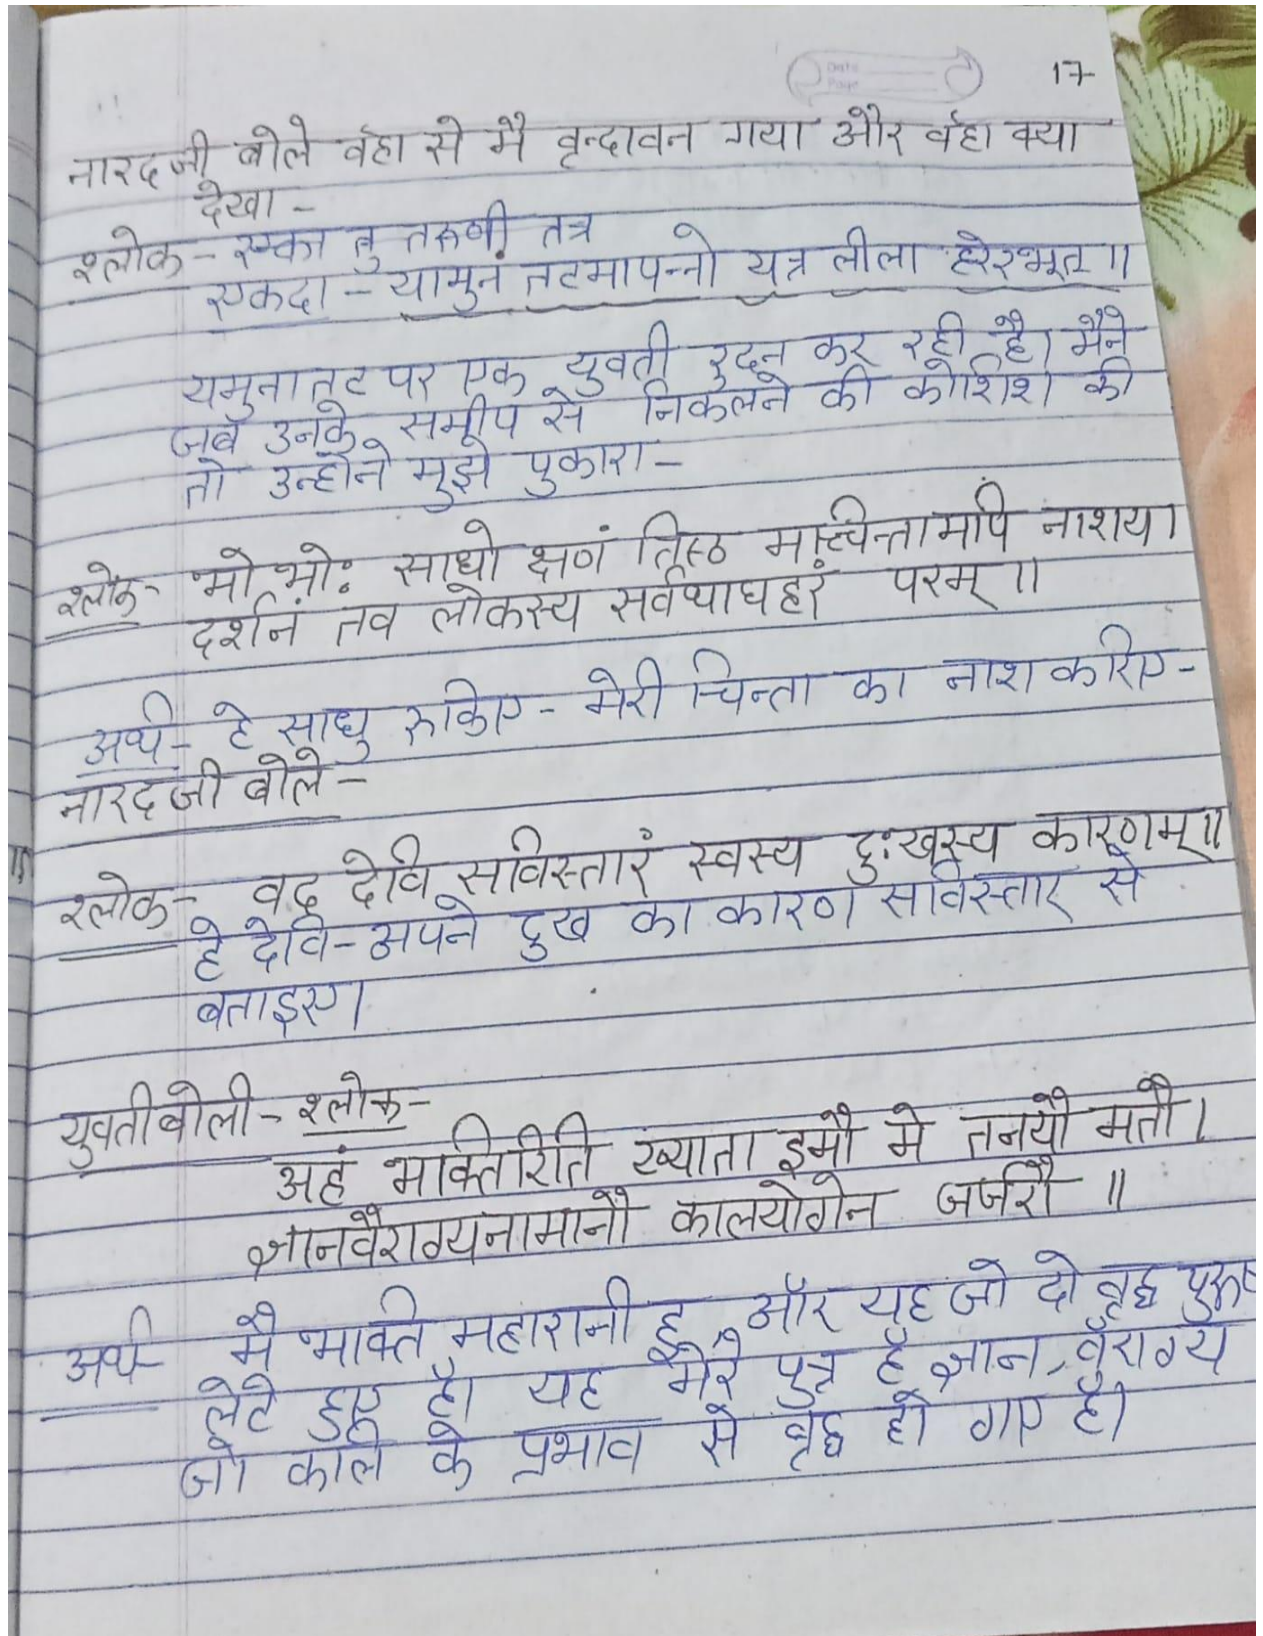 Date
Page
17
नारदजी बोले वहा से मै वृन्दावन गया और वहा क्या
देखा -
श्लोक - एका तु तरुणी तत्र
एकदा - यामुनं तटमापन्नो यत्र लीला हरेरभूत्॥
यमुना तट पर एक युवती रुदन कर रही है। मैने
जब उनके समीप से निकलने की कोशिश की
तो उन्होने मुझे पुकारा -
श्लोक - भो भोः साधो क्षणं तिष्ठ मच्चिन्तामपि नाशय।
दर्शनं तव लोकस्य सर्वथाघहरं परम्॥
अर्थ - हे साधु रुकिए - मेरी चिन्ता का नाश करिए -
नारदजी बोले -
श्लोक - वद देवि सविस्तारं स्वस्य दुःखस्य कारणम्॥
हे देवि - अपने दुख का कारण सविस्तार से
बताइए।
युवती बोली - श्लोक -
अहं भक्तिरिति ख्याता इमौ मे तनयौ मतौ।
ज्ञानवैराग्यनामानौ कालयोगेन जर्जरौ॥
अर्थ - मै भक्ति महारानी हू, और यह जो दो वृद्ध पुरुष
लेटे हुए है। यह मेरे पुत्र है ज्ञान, वैराग्य
जो काल के प्रभाव से वृद्ध हो गए है।